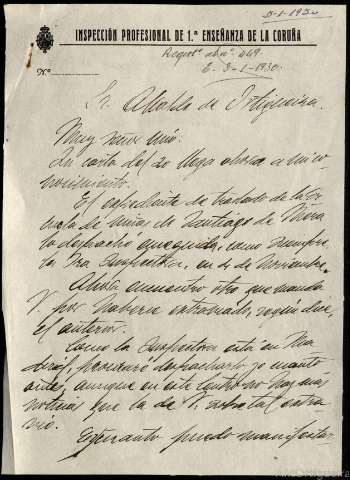 3-1-1930
INSPECCIÓN PROFESIONAL DE 1.ª ENSEÑANZA DE LA CORUÑA
N.º
449
E. 3-1-1930.
Sr. Alcalde de Ortigueira.
Muy Sr. mío:
Su carta del 20 llega ahora a mi co
nocimiento.
El expediente de traslado de la Es
cuela de niñas de Santiago de Mera
lo despachó enseguida, como siempre,
la Sra. Inspectora, en 4 de Noviembre.
Ahora encuentro otro que manda
V. por haberse extraviado, según dice,
el anterior.
Como la Inspectora está en Ma
drid, procuraré despacharlo yo cuanto
antes, aunque en este Centro no hay más
noticias que la de V. sobre tal extra
vío.
Es cuanto puedo manifestar